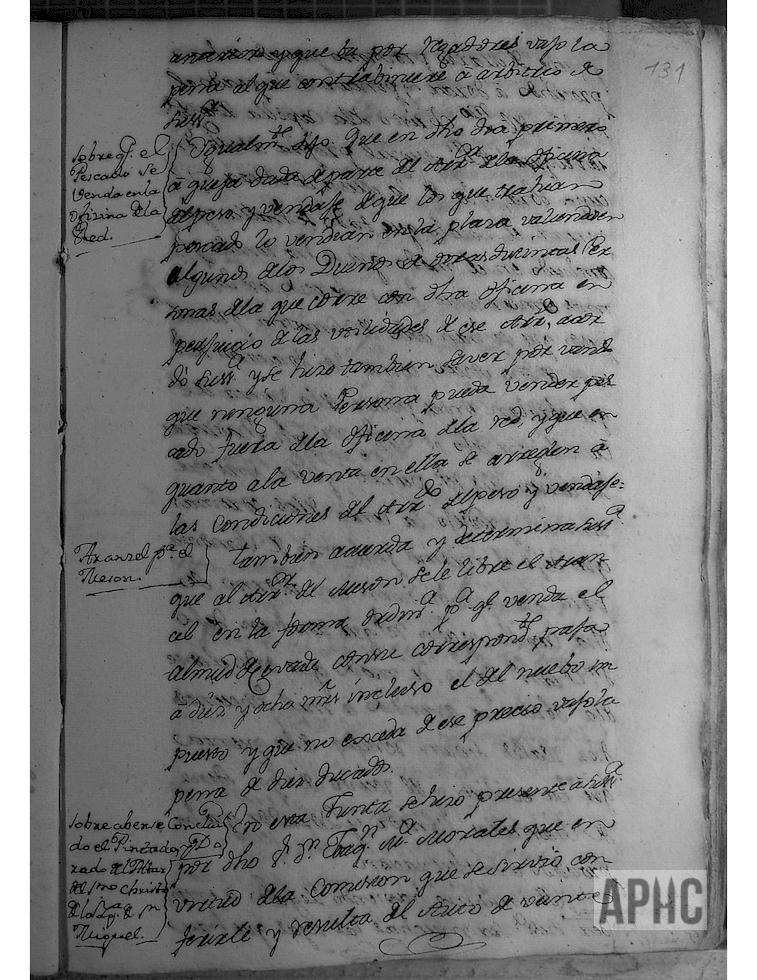 131
y que ba por Regadores vajo la
pena al que contrabiniere à arbitrio de
sussª
Sobre qe. el
Pescado se
venda en la
ofizina dela
Red.
Ygualmte. dijo: Que en dho dia primero
a queja dada de parte del Arrdor. dela oficina
del peso y vendaje de que los que trahian
pescado lo vendian en la plaza valiendose
algunos delos Dueños de otras distintas Per
sonas dela que corre con dha oficina en
perjuicio de las utilidades de ese Arrdo, acor
dó Sussª y se hizo tambien saver por vando
que ninguna Persona pueda vender pes
cado fuera dela oficina dela red, y que en
quanto ala venta en ella se arreglen a
las Condiciones del Arrdo del peso y vendaje=
Aranzel pª el
Meson.
tambien acuerda y determina Sussª
que al Arrdor. del meson se le libre el Aran
cel en la forma ordinª pª qe venda el
almud de cevada con su correspondte. paja
a diez y ocho mrs incluso el del nuebo im
puesto y que no exceda de ese precio vajo la
pena de diez ducados.
Sobre aberse Conclui
do el Pintado, y Do
rado del Altar
del Smo Christo
de la Ygª. de Sn
Miguel.
En esta Junta se hizo presente a Sussª
por dho Sr. Dn Joaqn Mª Morales que en
virtud dela Comision que se sirvio con
ferirle y resulta del Auto de vainte
APHC